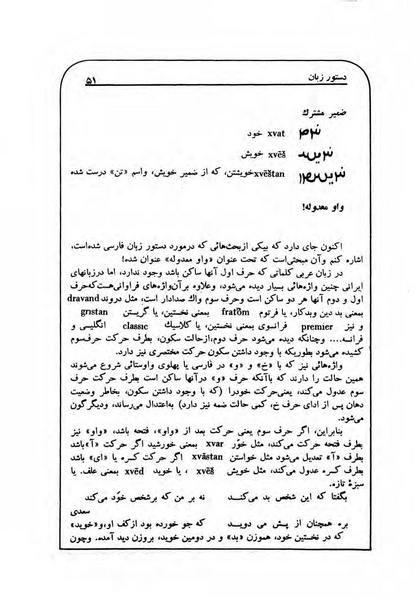 دستور زبان ۵۱
ضمیر مشترک
xvat خود
xvēš خویش
xvēštan خویشتن، که از ضمیر خویش، واسم «تن» درست شده
واو معدوله!
اکنون جای دارد که بیکی ازبحث‌هائی که درمورد دستور زبان فارسی شده‌است،
اشاره کنم وآن مبحثی‌است که تحت عنوان «واو معدوله» عنوان شده!
در زبان عربی کلماتی که حرف اول آنها ساکن باشد وجود ندارد، اما درزبانهای
ایرانی چنین واژه‌هائی بسیار دیده می‌شود، وعلاوه برآن‌واژه‌های فراوانی‌هست‌که‌حرف
اول و دوم آنها هر دو ساکن است وحرف سوم واك صدادار است، مثل دروند dravand
بمعنی بد دین وبدکار، یا فرتوم fratōm بمعنی نخستین، یا گریستن grıstan
و نیز premier فرانسوی بمعنی نخستین، یا کلاسیك classic انگلیسی و
فرانسه.... وچنانکه دیده می‌شود، دوم‌حرف دوم،ازحالت سکون، بطرف حرکت حرف‌سوم
کشیده می‌شود بطوریکه با وجود داشتن سکون حرکت مختصری نیز دارد.
واژه‌هائی نیز که با «خ» و «و» در فارسی یا پهلوی واوستائی شروع می‌شوند
همین حالت را دارند که باآنکه حرف «و» درآنها ساکن است بطرف حرکت حرف
سوم عدول می‌کند، یعنی‌حرکت خودرا (که با وجود داشتن سکون، بخاطر وضعیت
دهان پس از ادای حرف خ، کمی حالت ضمه نیز دارد) به‌اعتدال می‌رساند، ودیگرگون
می‌شود.
بنابراین، اگر حرف سوم یعنی حرکت بعد از «واو»، فتحه باشد، «واو» نیز
بطرف فتحه حرکت می‌کند، مثل خور xvar بمعنی خورشید اگر حرکت «آ»باشد
بطرف «آ» تعدیل می‌شود مثل خواستن xvāstan اگر حرکت کسره یا «ای» باشد
بطرف کسره عدول می‌کند، مثل خویش xvēš ، یا خوید xvēd بمعنی علف. یا
سبزهٔ تازه.
بگفتا که این شخص بد می‌کند نه بر من که برشخص خود می‌کند
سعدی
بره همچنان از پش می دوید که جو خورده بود ازکف او،و«خوید»
که در نخستین خود، هموزن «بد» و در دومین خوید، بروزن دید آمده. وچون